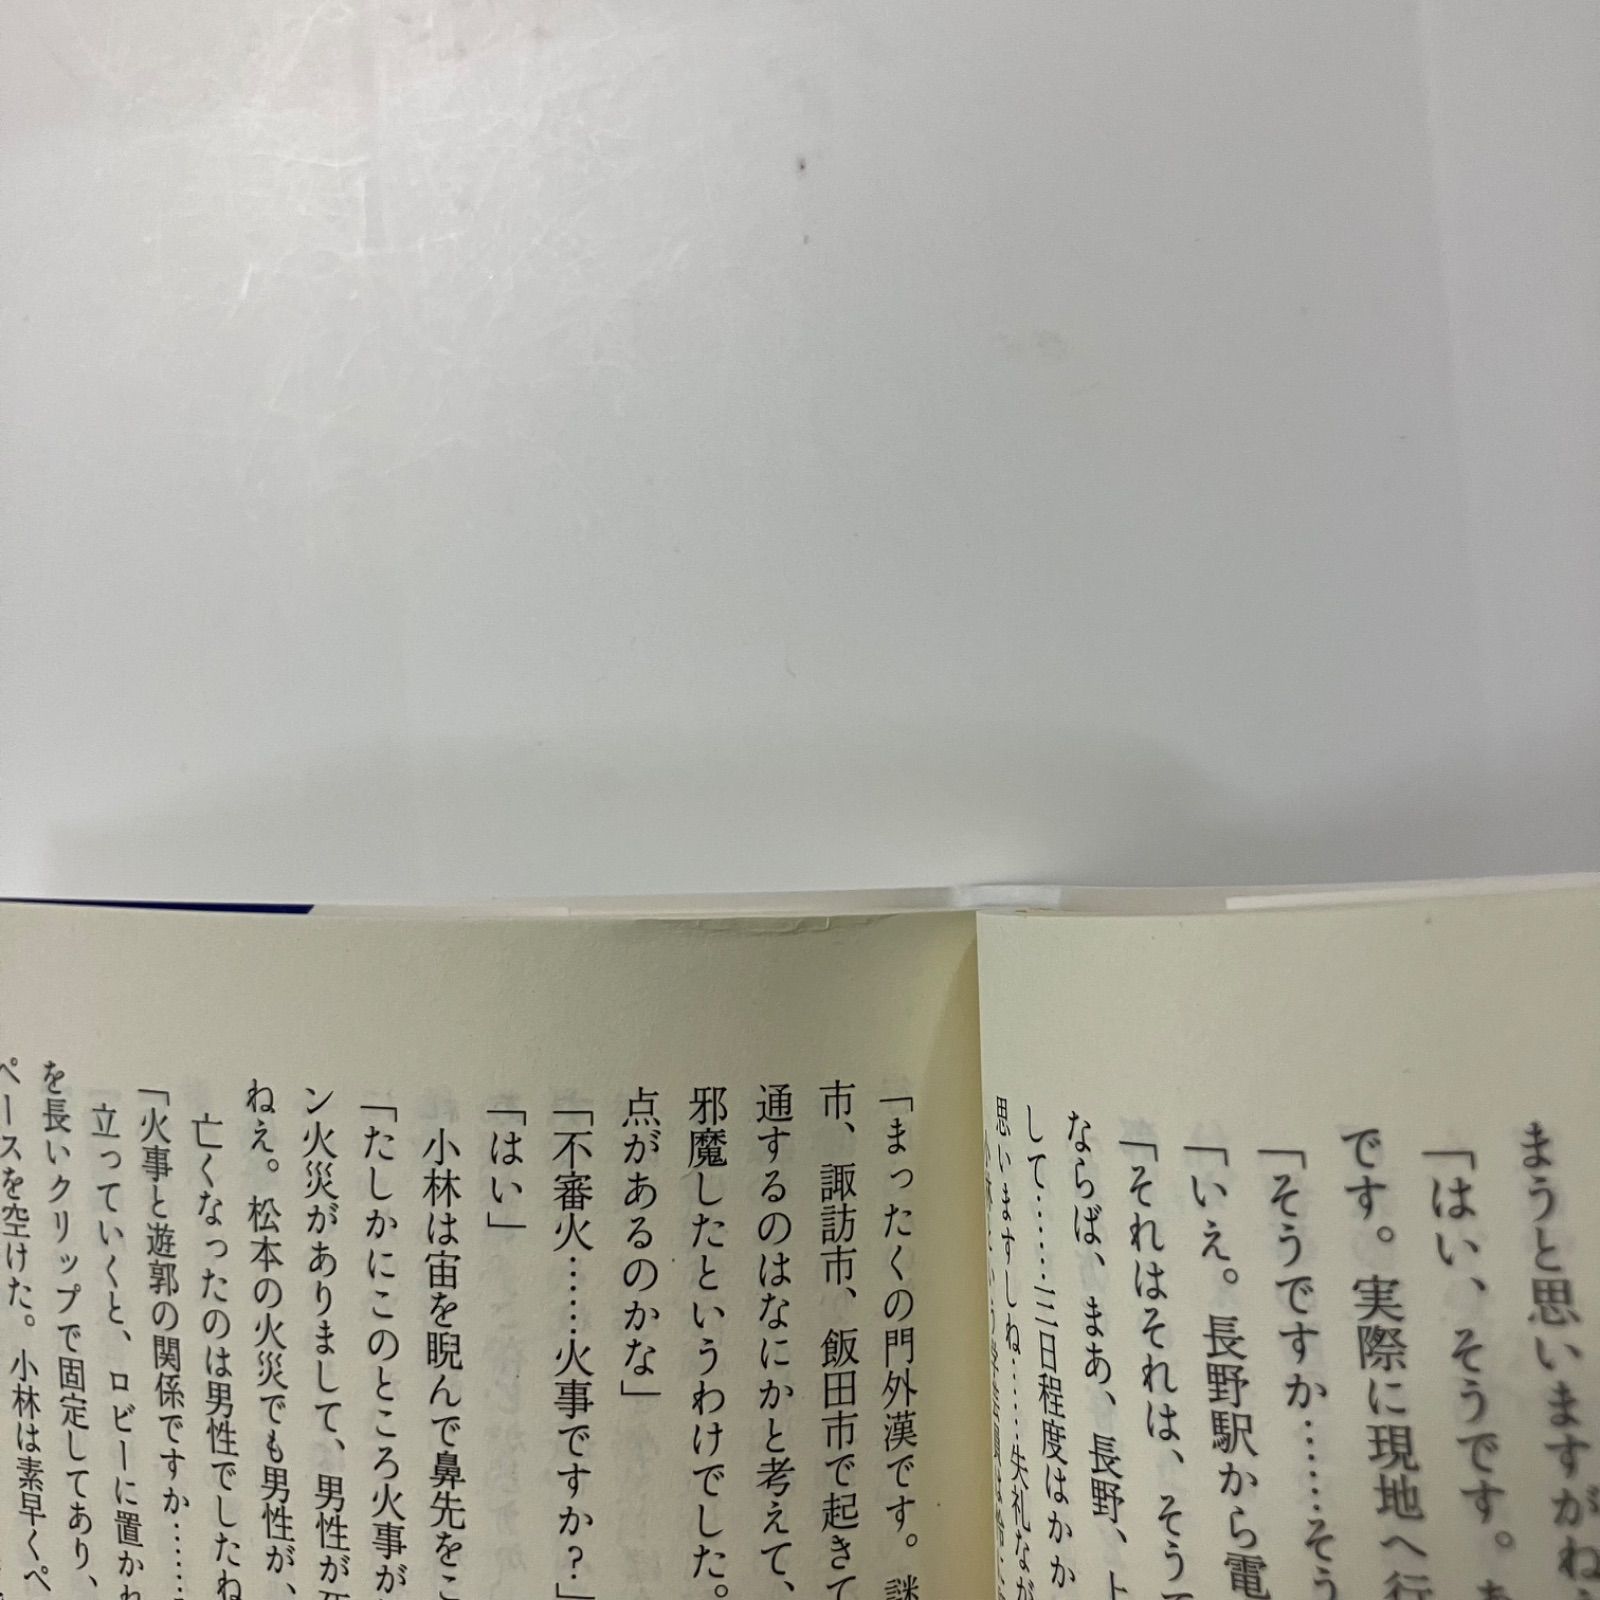 まうと思いますがね
「はい、そうです。あ
です。実際に現地へ行
「そうですか……そう
「いえ。長野駅から電
「それはそれは、そう
ならば、まあ、長野、上
して……二三日程度はかか
思いますしね……失礼なが
「まったくの門外漢です。謎
市、諏訪市、飯田市で起きて
通するのはなにかと考えて、
邪魔したというわけでした。
点があるのかな」
「不審火……火事ですか？」
「はい」
小林は宙を睨んで鼻先をこ
「たしかにこのところ火事が
ン火災がありまして、男性が死
ねえ。松本の火災でも男性が、
亡くなったのは男性でしたね
「火事と遊郭の関係ですか……
立っていくと、ロビーに置かれ
を長いクリップで固定してあり、
ペースを空けた。小林は素早くペ